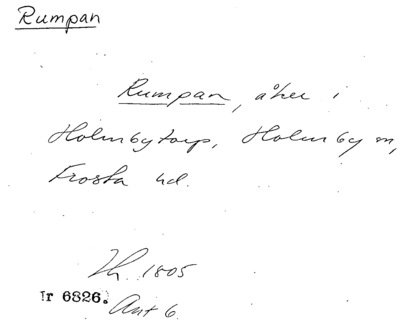 Rumpan
Rumpan, åker i
Holmbytorp, Holmby sn,
Frosta hd.
1805
Ir 6826.
Ant 6.